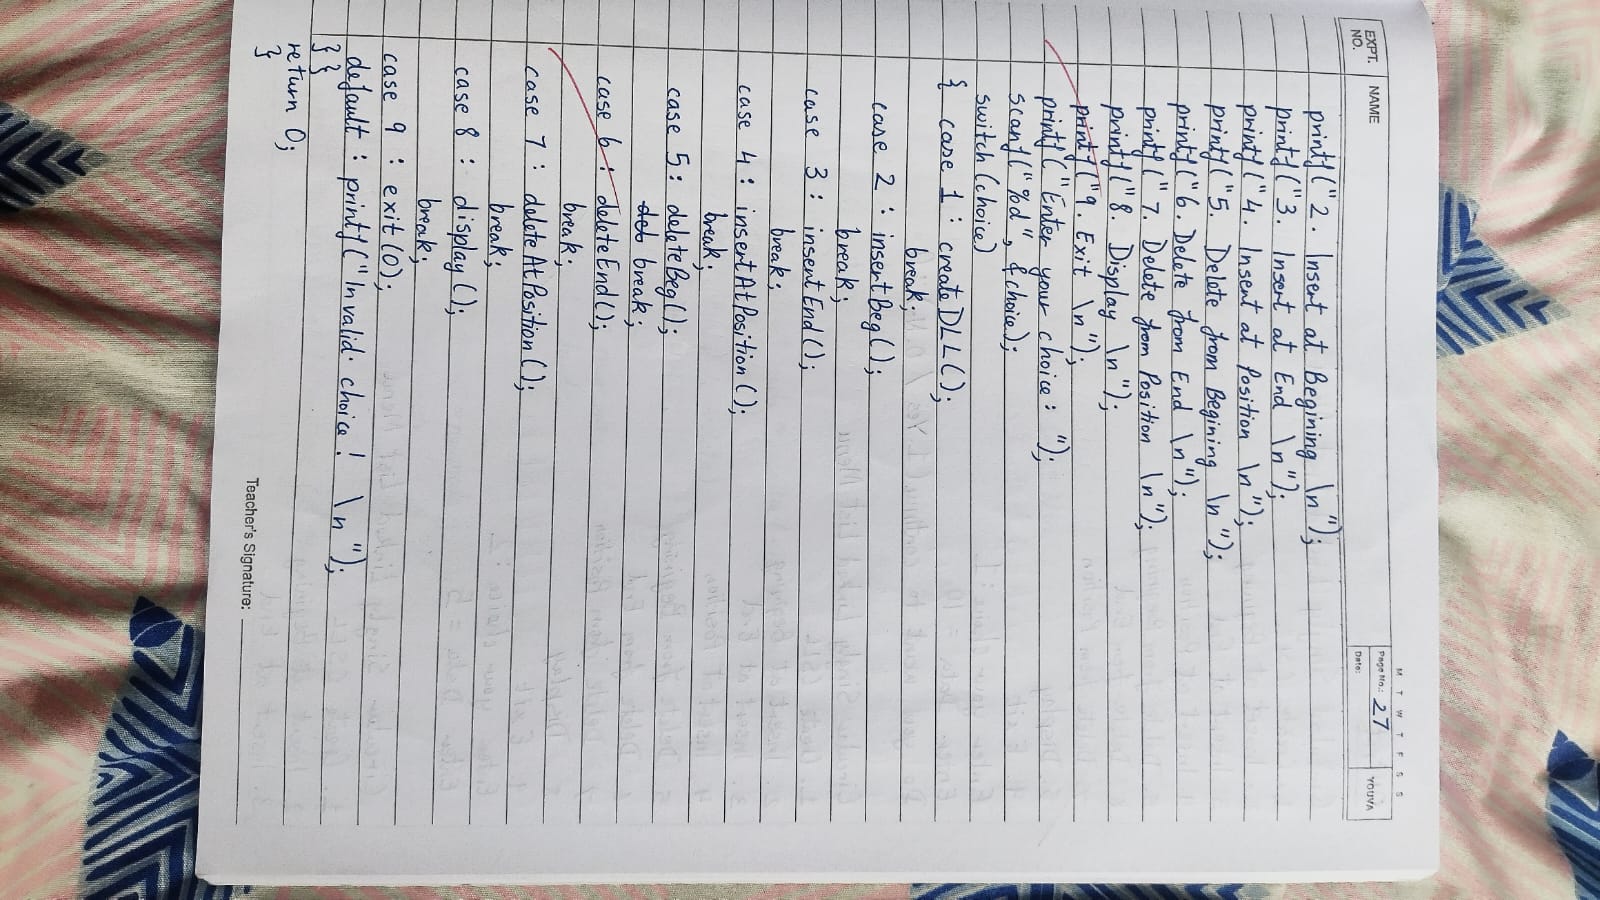 M T W T F S S
EXPT. NO.
NAME
Page No.: 27
Date:
YOUVA
printf("2. Insert at Begining \n");
printf("3. Insert at End \n");
printf("4. Insert at Position \n");
printf("5. Delete from Begining \n");
printf("6. Delete from End \n");
printf("7. Delete from Position \n");
printf("8. Display \n");
printf("9. Exit \n");
printf("Enter your choice: ");
scanf("%d", &choice);
switch (choice)
{ case 1 : createDLL();
break;
case 2 : insertBeg();
break;
case 3 : insertEnd();
break;
case 4 : insertAtPosition();
break;
case 5 : deleteBeg();
break;
case 6 : deleteEnd();
break;
case 7 : deleteAtPosition();
break;
case 8 : display();
break;
case 9 : exit(0);
default : printf("Invalid choice! \n");
} }
return 0;
}
Teacher's Signature: